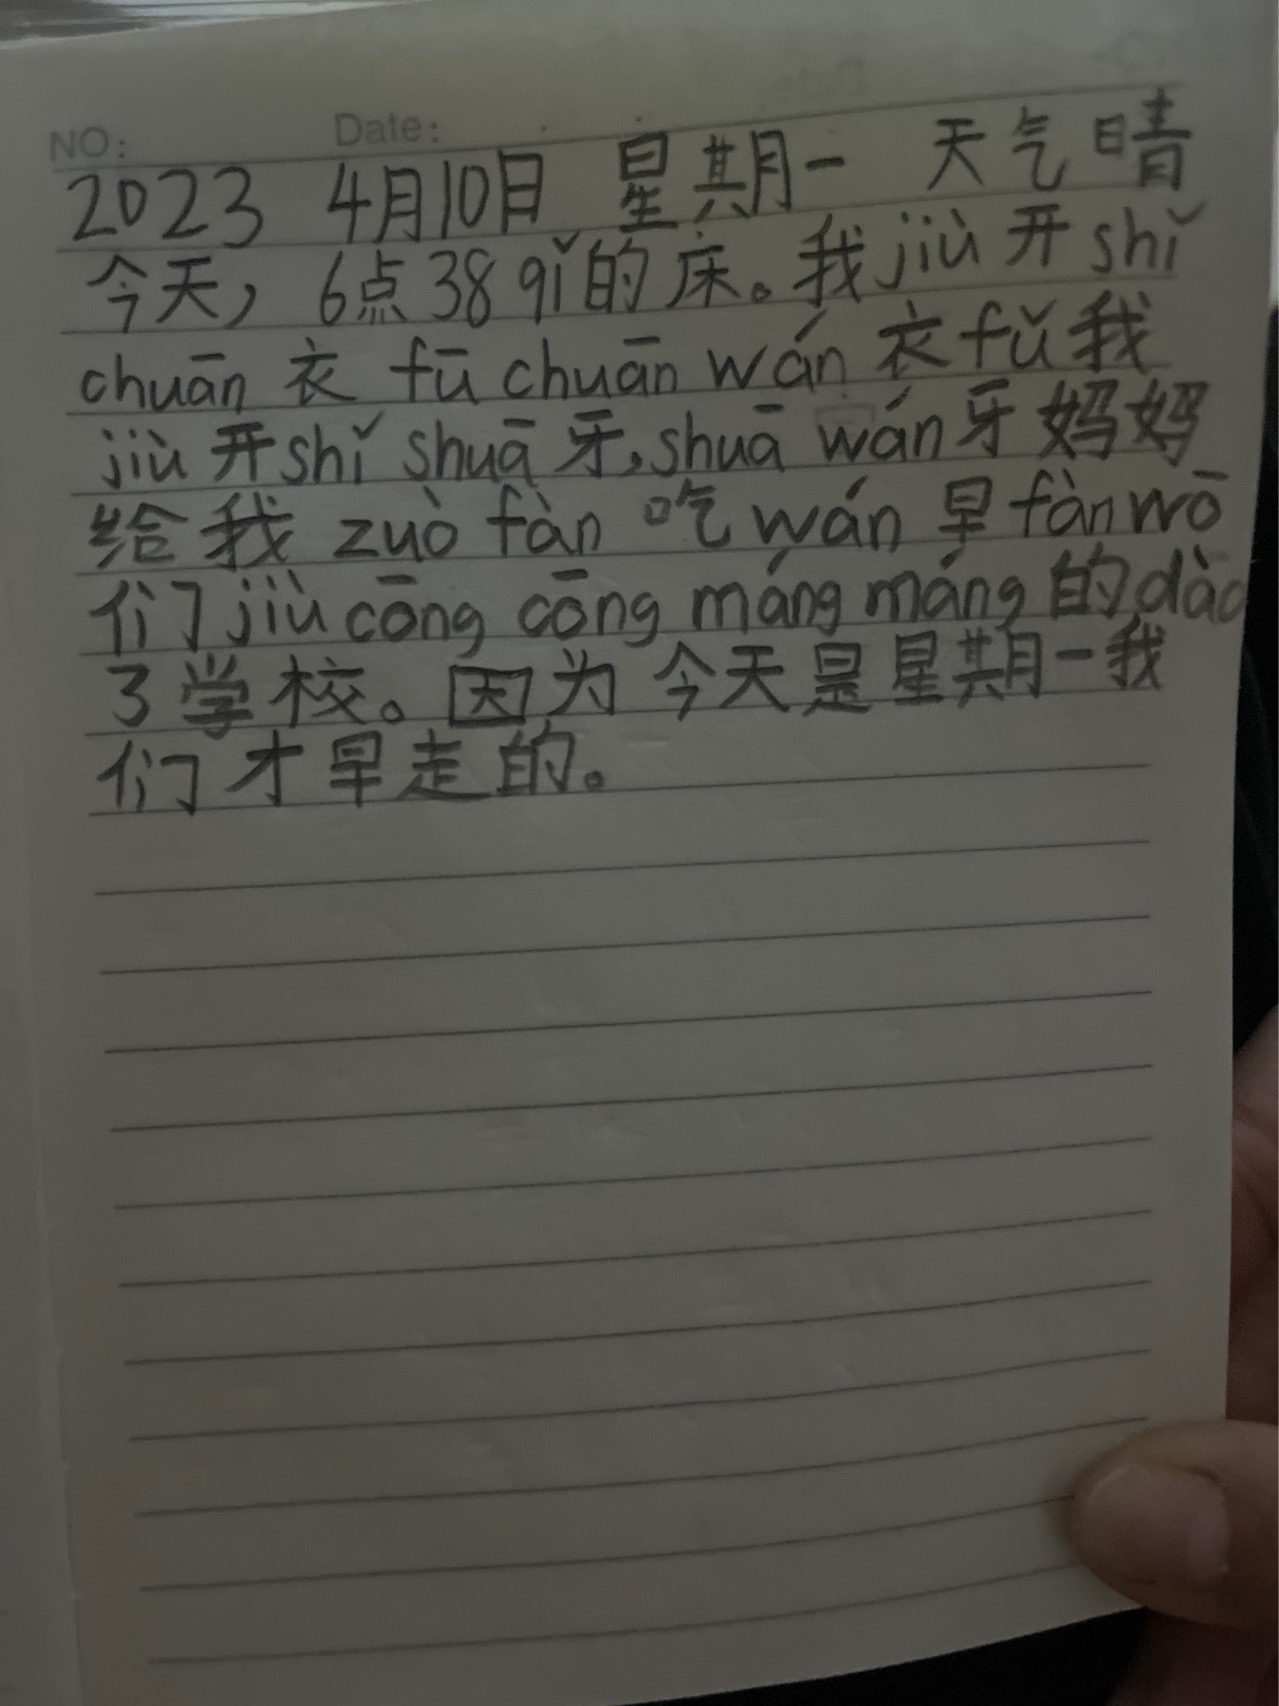 NO: Date:
2023 4月10日 星期一 天气晴
今天，6点38qǐ的床。我jiù开shǐ
chuān 衣 fū chuān wán 衣fǔ我
jiù开shǐ shuā牙,shuā wán牙妈妈
给我 zuò fàn 吃wán 早fàn wō
们jiù cōng cōng máng máng的dào
了学校。因为今天是星期一我
们才早走的。